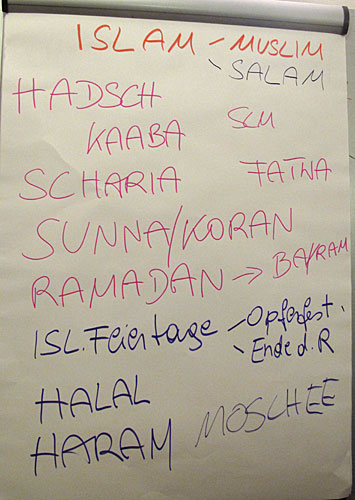 ISLAM - MUSLIM
- SALAM
HADSCH
KAABA
SCHARIA
FATWA
SUNNA/KORAN
RAMADAN → BAYRAM
ISL. Feiertage - Opferfest.
- Ende d. R
HALAL
HARAM MOSCHEE